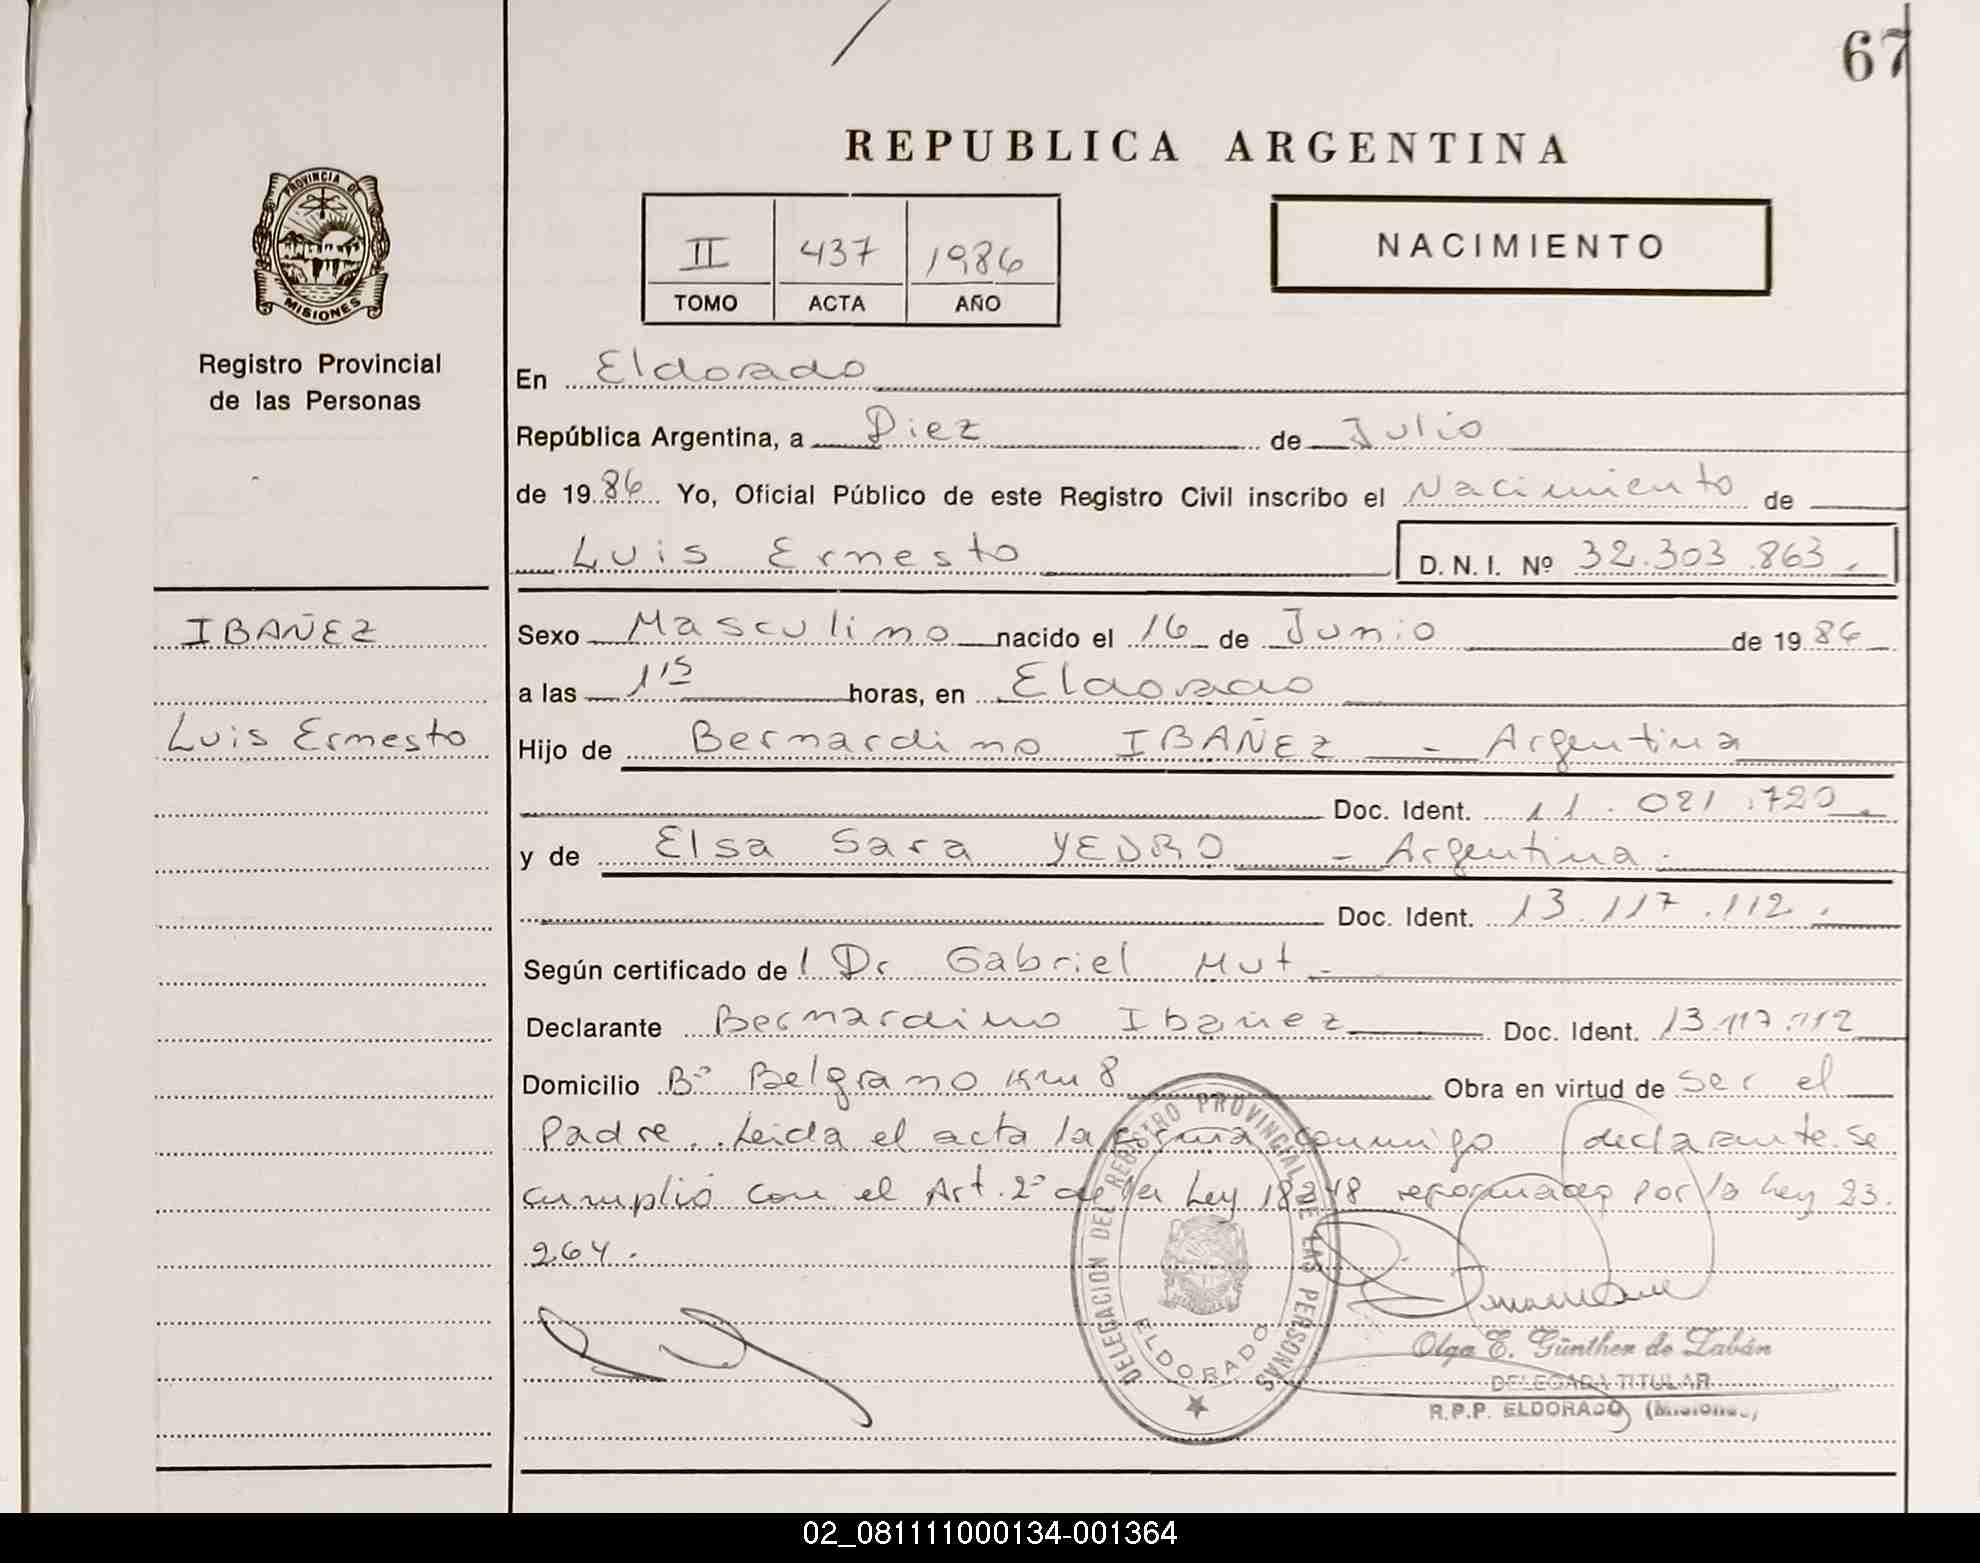 67
REPUBLICA ARGENTINA
PROVINCIA DE
MISIONES
II 437 1986
TOMO ACTA AÑO
NACIMIENTO
Registro Provincial
de las Personas
En Eldorado
República Argentina, a Diez de Julio
de 1986 Yo, Oficial Público de este Registro Civil inscribo el Nacimiento de
Luis Ernesto D.N.I. Nº 32.303.863.
IBAÑEZ
Luis Ernesto
Sexo Masculino nacido el 16 de Junio de 1986
a las 1'15 horas, en Eldorado
Hijo de Bernardino IBAÑEZ - Argentina
Doc. Ident. 11.021.720.
y de Elsa Sara YEDRO - Argentina.
Doc. Ident. 13.117.112.
Según certificado de l Dr Gabriel Mut-
Declarante Bernardino Ibañez Doc. Ident. 13.117.112
Domicilio Bº Belgrano Km 8 Obra en virtud de ser el
Padre. Leida el acta la firma conmigo declarante. se
cumplió con el Art. 2º de la Ley 18248 reformado por la Ley 23.
264.
DELEGACION DEL REGISTRO PROVINCIAL DE LAS PERSONAS
ELDORADO
Olga E. Günther de Zabán
DELEGADA TITULAR
R.P.P. ELDORADO (Misiones)
02_081111000134-001364